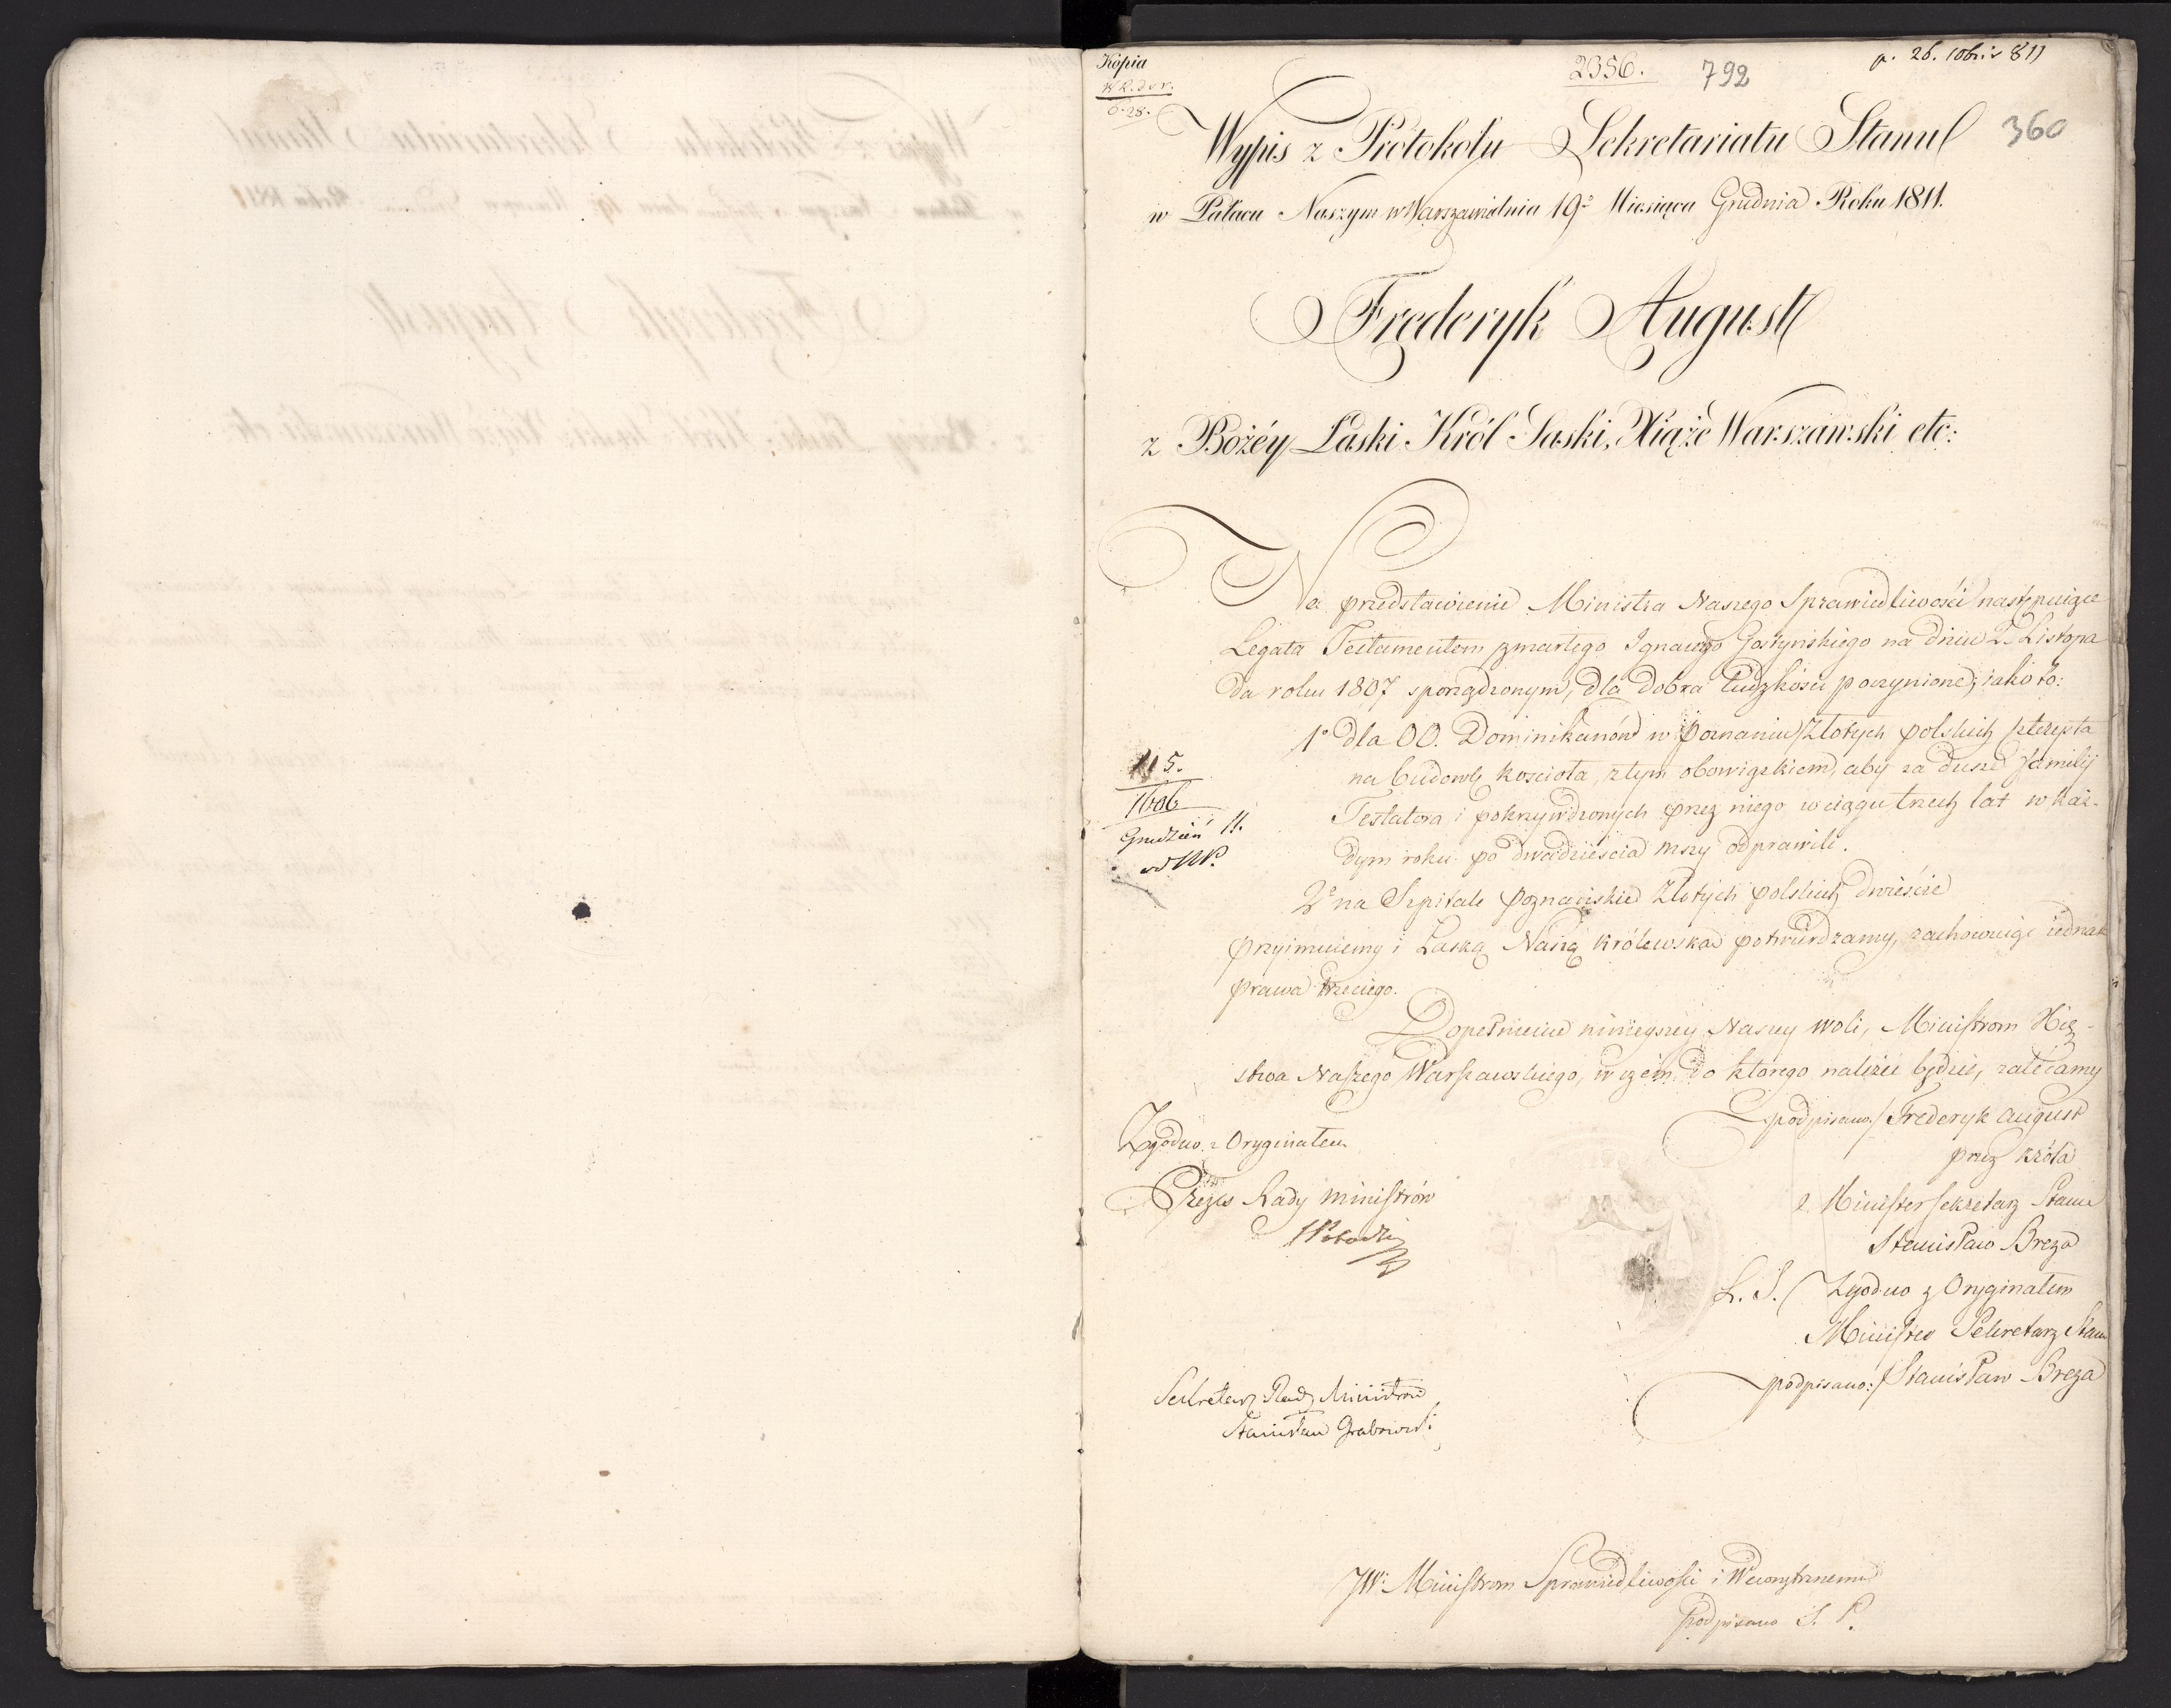 Kopia
2356.
792
p. 26. 10br: 811
360
Wypis z Protokołu Sekretariatu Stanu
w Pałacu Naszym w Warszawie dnia 19º Miesiąca Grudnia Roku 1811.
Frederyk August
z Bożéy Łaski Król Saski, Xiąże Warszawski etc:
Na przedstawienie Ministra Naszego Sprawiedliwości następuiące
Legata Testamentem zmarłego Ignacego Gostyńskiego na dniu 2. Listopa
da roku 1807 sporządzonym, dla dobra ludzkości poczynione, iako to:
1º dla OO. Dominikanów w Poznaniu Złotych polskich czterysta
na budowlę kościoła, z tym obowiązkiem, aby za dusze familij
Testatora i pokrzywdzonych przez niego w ciągu trzech lat w każ-
dym roku po dwadzieścia mszy odprawili.
2º na Szpitale Poznańskie Złotych polskich dwieście
przyimuiemy i Łaską Naszą Królewską potwierdzamy, zachowuiąc iednak
prawa trzeciego.
115.
1606
Grudzień 11.
Dopełnienie ninieyszey Naszey woli, Ministrom Xię-
stwa Naszego Warszawskiego, w czém do którego należeć będzie, zalécamy
podpisano/ Frederyk August
przez Króla
Minister Sekretarz Stanu
Stanisław Breza
L. S. / Zgodno z Oryginałem
Minister Sekretarz Stanu
podpisano:/ Stanisław Breza
Zgodno z Oryginałem
Prezes Rady Ministrów
Sekretarz Rady Ministrów
Stanisław Grabowski
JW: Ministrom Sprawiedliwości i Wewnętrznemu
podpisano S. P.